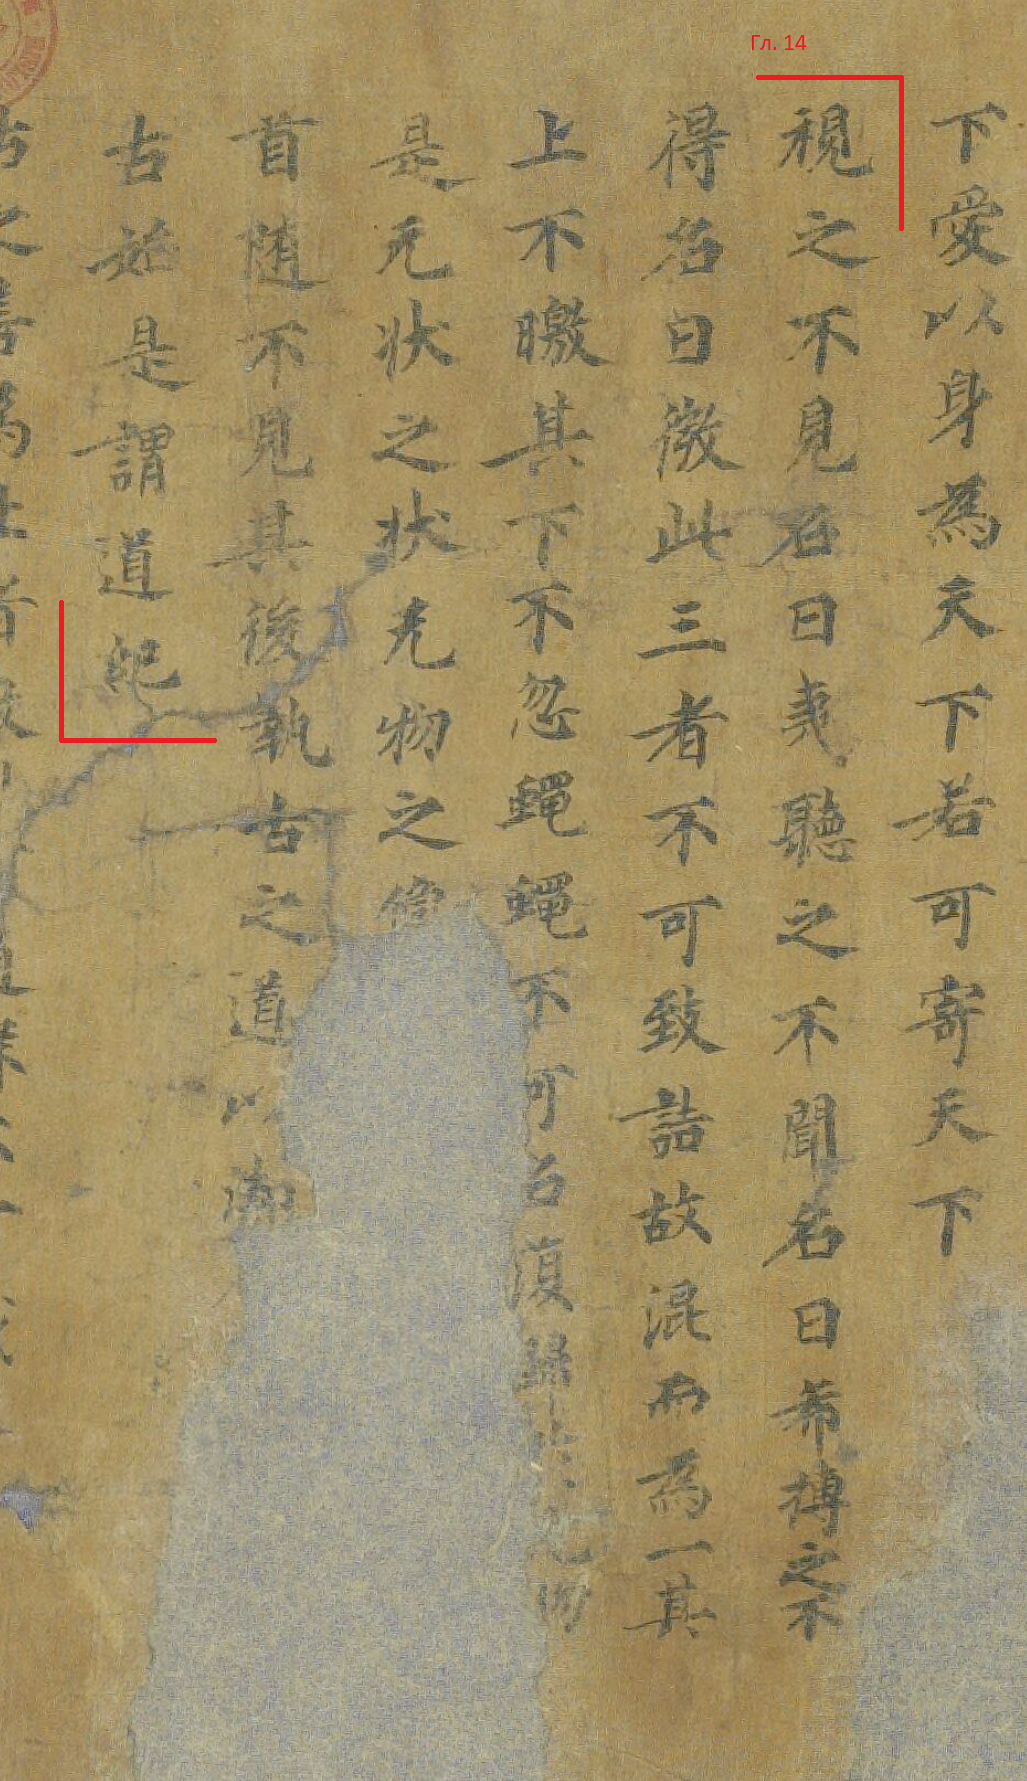 Гл. 14
下愛以身為天下若可寄天下
視之不見名曰夷聽之不聞名曰希摶之不
得名曰微此三者不可致詰故混而為一其
上不曒其下不忽蠅蠅不可名復歸於无物
是无狀之狀无物之像
首随不見其後執古之道以御
古始是謂道紀
古之善為士者